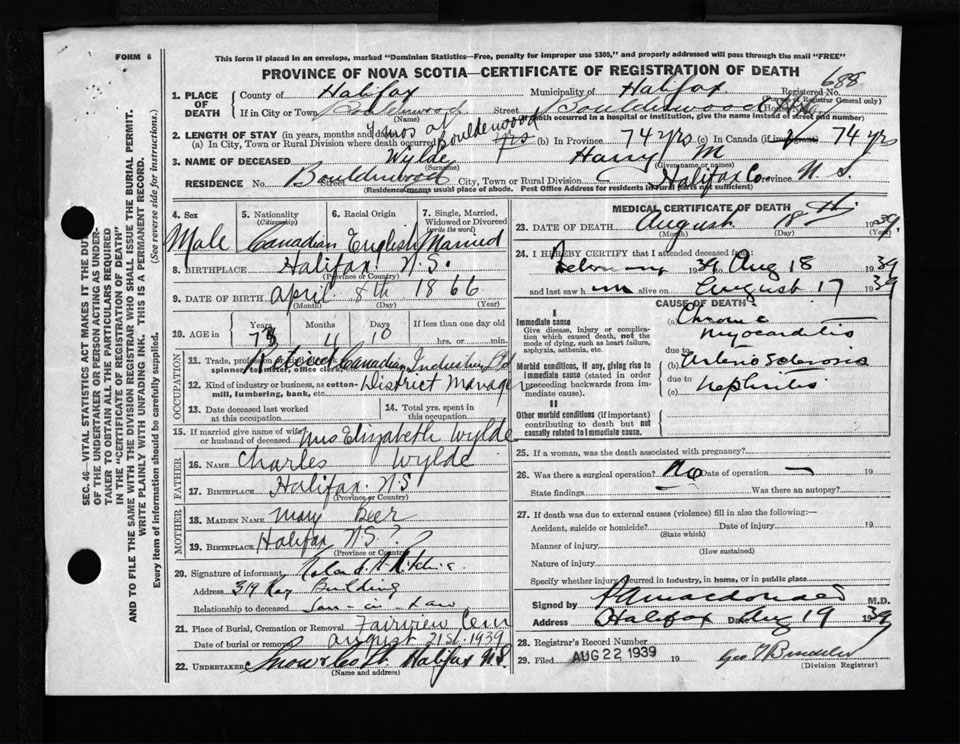 FORM 6
This form if placed in an envelope, marked "Dominion Statistics—Free, penalty for improper use $300," and properly addressed will pass through the mail "FREE"
PROVINCE OF NOVA SCOTIA—CERTIFICATE OF REGISTRATION OF DEATH
688
1. PLACE OF DEATH
County of Halifax Municipality of Halifax Registered No.
(For use of Registrar General only)
If in City or Town Boulderwood Street Boulderwood
(Name) (If death occurred in a hospital or institution, give the name instead of street and number)
2. LENGTH OF STAY (in years, months and days)
(a) In City, Town or Rural Division where death occurred 4 mos at Boulderwood (b) In Province 74 yrs (c) In Canada (if immigrant) 74 yrs
3. NAME OF DECEASED Wylde Harry M
(Surname) (Given name or names)
RESIDENCE No. Boulderwood Street City, Town or Rural Division Halifax Co. Province N. S.
(Residence means usual place of abode. Post Office Address for residents in rural parts not sufficient)
4. Sex
5. Nationality (Citizenship)
6. Racial Origin
7. Single, Married, Widowed or Divorced (write the word)
Male Canadian English Married
8. BIRTHPLACE Halifax N.S.
(Province or Country)
9. DATE OF BIRTH April 8th 1866
(Month) (Day) (Year)
10. AGE in Years Months Days If less than one day old
73 4 10 hrs. or min.
OCCUPATION
11. Trade, profession or Retired Canadian Industries Ltd
spinner, office clerk
12. Kind of industry or business, as cotton-mill, lumbering, bank, etc. District Manager
13. Date deceased last worked at this occupation
14. Total yrs. spent in this occupation
15. If married give name of wife or husband of deceased Mrs Elizabeth Wylde
FATHER
16. Name Charles Wylde
17. BIRTHPLACE Halifax N.S
(Province or Country)
MOTHER
18. MAIDEN NAME Mary Beer
19. BIRTHPLACE Halifax N.S.?
(Province or Country)
20. Signature of informant Roland A Ritchie
Address 319 Roy Building
Relationship to deceased Son-in-Law
21. Place of Burial, Cremation or Removal Fairview Cem
Date of burial or removal August 21st. 1939
22. UNDERTAKER Snow & Co Ltd Halifax N.S.
(Name and address)
MEDICAL CERTIFICATE OF DEATH
23. DATE OF DEATH August 18th 1939
(Month) (Day) (Year)
24. I HEREBY CERTIFY that I attended deceased from
1939 to Aug 18 1939
and last saw him alive on August 17 1939
CAUSE OF DEATH
I
Immediate cause
Give disease, injury or complication which caused death, not the mode of dying, such as heart failure, asphyxia, asthenia, etc.
(a) Chronic Myocarditis
due to
Morbid conditions, if any, giving rise to immediate cause (stated in order proceeding backwards from immediate cause).
(b) Arterio Sclerosis
due to
(c) Nephritis
II
Other morbid conditions (if important) contributing to death but not causally related to immediate cause.
25. If a woman, was the death associated with pregnancy?
26. Was there a surgical operation? No Date of operation — 19
State findings Was there an autopsy?
27. If death was due to external causes (violence) fill in also the following:—
Accident, suicide or homicide? Date of injury 19
(State which)
Manner of injury
(How sustained)
Nature of injury
Specify whether injury occurred in industry, in home, or in public place
Signed by Macdonald M.D.
Address Halifax Date Aug 19 1939
28. Registrar's Record Number
29. Filed AUG 22 1939 19
(Division Registrar)
SEC. 46—VITAL STATISTICS ACT MAKES IT THE DUTY OF THE UNDERTAKER OR PERSON ACTING AS UNDERTAKER TO OBTAIN ALL THE PARTICULARS REQUIRED IN THE "CERTIFICATE OF REGISTRATION OF DEATH" AND TO FILE THE SAME WITH THE DIVISION REGISTRAR WHO SHALL ISSUE THE BURIAL PERMIT.
WRITE PLAINLY WITH UNFADING INK. THIS IS A PERMANENT RECORD.
Every item of information should be carefully supplied. (See reverse side for instructions.)